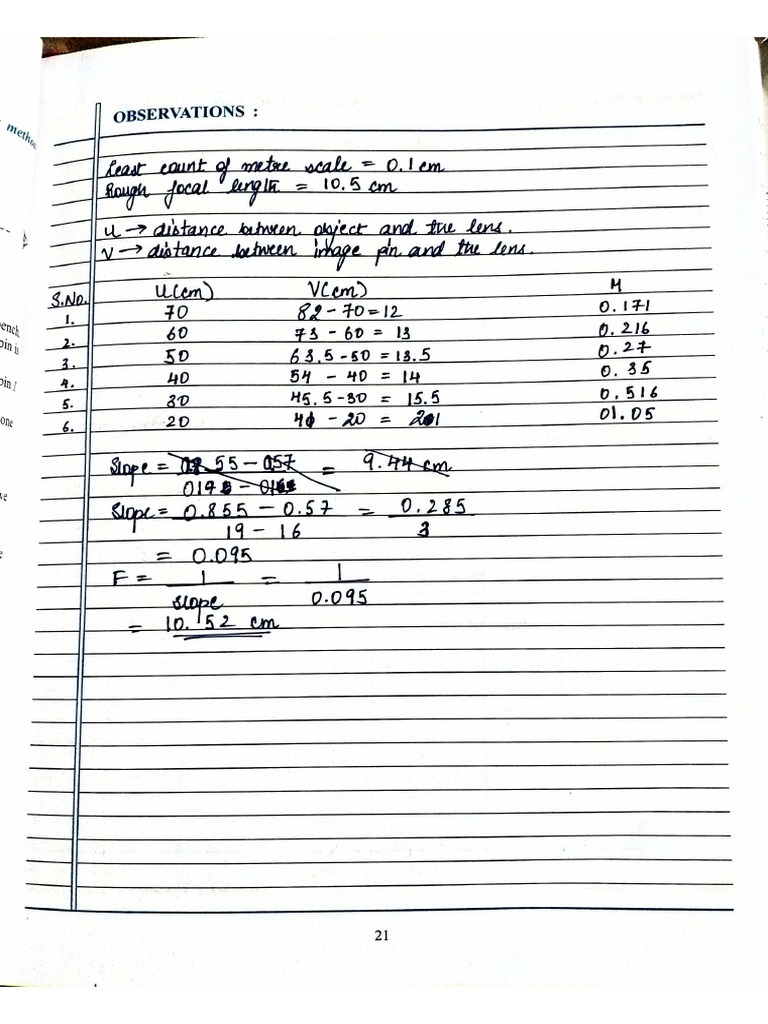 OBSERVATIONS :
Least count of metre scale = 0.1 cm
Rough focal length = 10.5 cm
u → distance between object and the lens.
v → distance between image pin and the lens.
S.No. U(cm) V(cm) M
1. 70 82 - 70 = 12 0.171
2. 60 73 - 60 = 13 0.216
3. 50 63.5 - 50 = 13.5 0.27
4. 40 54 - 40 = 14 0.35
5. 30 45.5 - 30 = 15.5 0.516
6. 20 41 - 20 = 21 01.05
Slope = = 9.44 cm
Slope = 0.855 - 0.57 = 0.285
19 - 16 3
= 0.095
F = 1 = 1
slope 0.095
= 10.52 cm
21